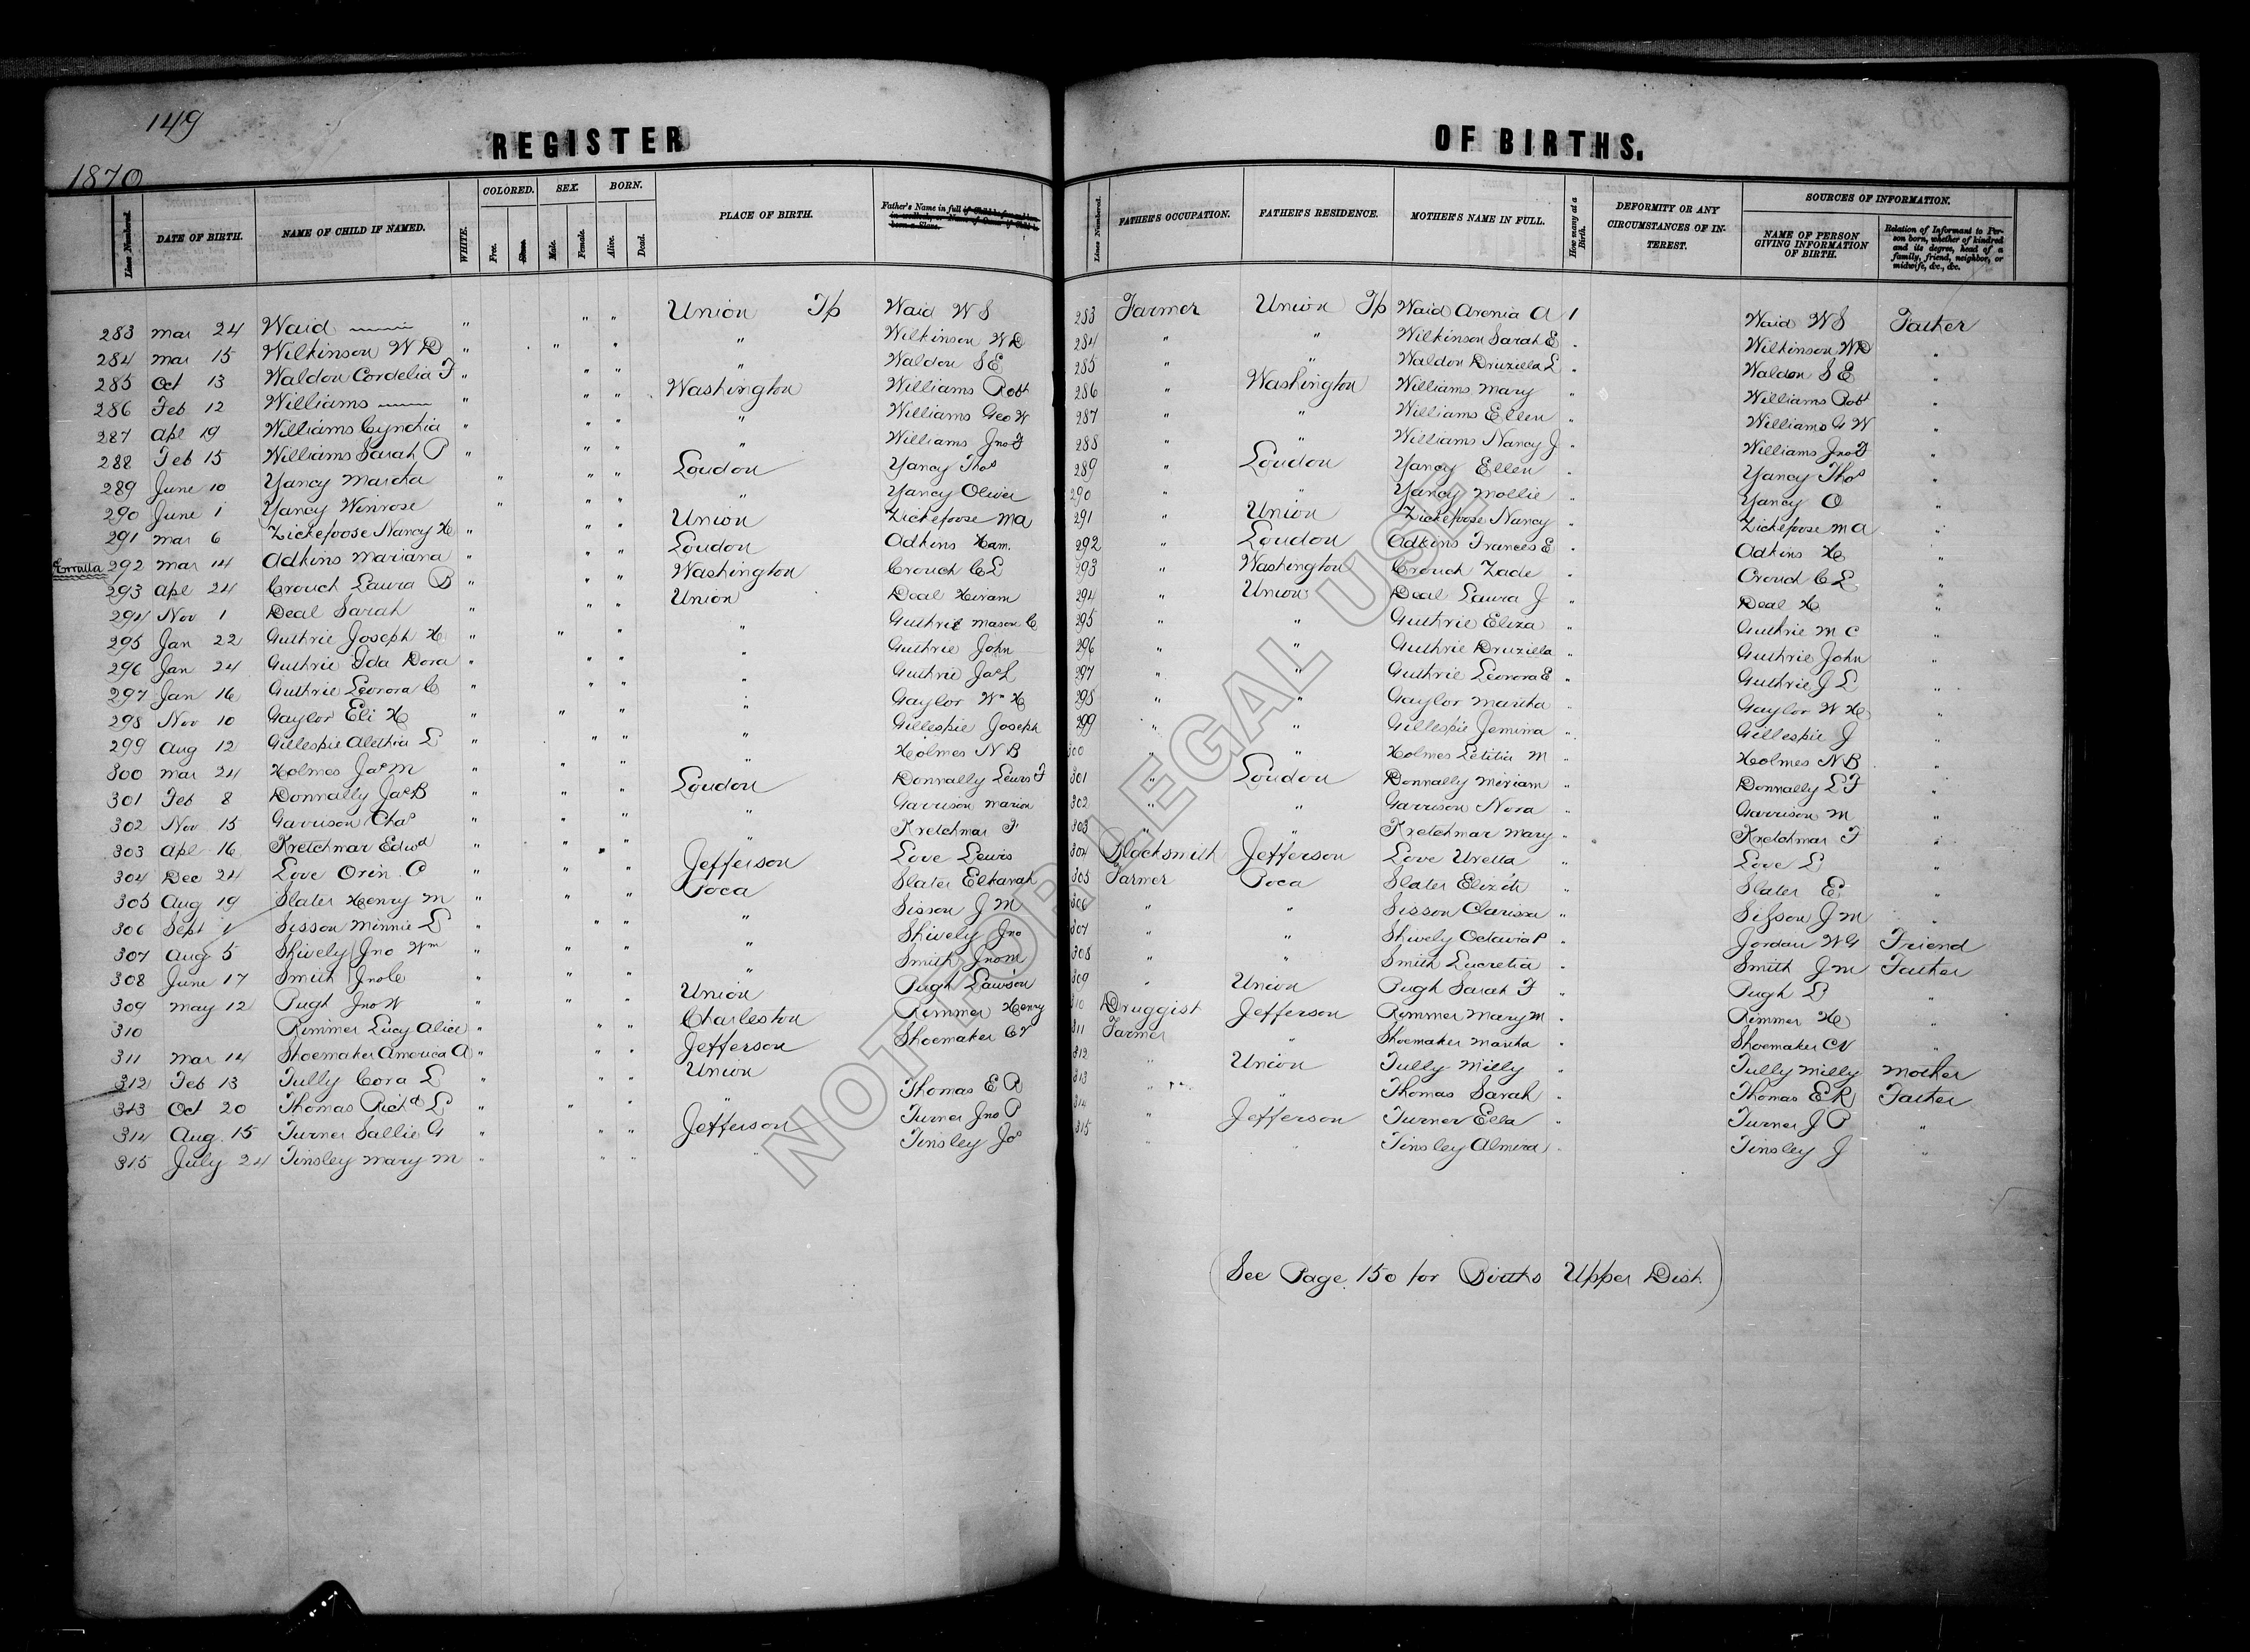 149
REGISTER OF BIRTHS.
1870
Lines Numbered. DATE OF BIRTH. NAME OF CHILD IF NAMED. WHITE. COLORED. Free. Slave. SEX. Male. Female. BORN. Alive. Dead. PLACE OF BIRTH. Father's Name in full if Child be free and born in wedlock, or Name of Owner if Child be born a Slave. Lines Numbered. FATHER'S OCCUPATION. FATHER'S RESIDENCE. MOTHER'S NAME IN FULL. How many at a Birth. DEFORMITY OR ANY CIRCUMSTANCES OF INTEREST. SOURCES OF INFORMATION. NAME OF PERSON GIVING INFORMATION OF BIRTH. Relation of Informant to Person born, whether of kindred and its degree, head of a family, friend, neighbor, or midwife, &c., &c.
283 Mar 24 Waid —— " " " Union Tp Waid W S 283 Farmer Union Tp Waid Arenia A 1 Waid W S Father
284 Mar 15 Wilkinson W D " " " " Wilkinson W D 284 " " Wilkinson Sarah E " Wilkinson W D "
285 Oct 13 Waldon Cordelia F " " " " Waldon S E 285 " " Waldon Druzilla L " Waldon S E "
286 Feb 12 Williams —— " " " Washington Williams Robt 286 " Washington Williams Mary " Williams Robt "
287 Apl 19 Williams Cynthia " " " " Williams Geo W 287 " " Williams Ellen " Williams G W "
288 Feb 15 Williams Sarah P " " " " Williams Jno F 288 " " Williams Nancy J " Williams Jno F "
289 June 10 Yancy Martha " " " Loudon Yancy Thos 289 " Loudon Yancy Ellen " Yancy Thos "
290 June 1 Yancy Winrose " " " " Yancy Oliver 290 " " Yancy Mollie " Yancy O "
291 Mar 6 Zickefoose Nancy H " " " Union Zickefoose M A 291 " Union Zickefoose Nancy " Zickefoose M A "
Erratta 292 Mar 14 Adkins Mariana " " " Loudon Adkins Ham. 292 " Loudon Adkins Frances E " Adkins H "
293 Apl 24 Crouch Laura B " " " Washington Crouch C L 293 " Washington Crouch Zade " Crouch C L "
294 Nov 1 Deal Sarah " " " Union Deal Hiram 294 " Union Deal Laura J " Deal H "
295 Jan 22 Guthrie Joseph H " " " " Guthrie Mason C 295 " " Guthrie Eliza " Guthrie M C "
296 Jan 24 Guthrie Ida Dora " " " " Guthrie John 296 " " Guthrie Druzilla " Guthrie John "
297 Jan 16 Guthrie Leonora C " " " " Guthrie Jas L 297 " " Guthrie Leonora E " Guthrie J L "
298 Nov 10 Gaylor Eli H " " " " Gaylor Wm H 298 " " Gaylor Martha " Gaylor W H "
299 Aug 12 Gillespie Alethia L " " " " Gillespie Joseph 299 " " Gillespie Jemima " Gillespie J "
300 Mar 24 Holmes Jas M " " " " Holmes N B 300 " " Holmes Letitia M " Holmes N B "
301 Feb 8 Donnally Jas B " " " Loudon Donnally Lewis F 301 " Loudon Donnally Miriam " Donnally L F "
302 Nov 15 Garrison Chas " " " " Garrison Marion 302 " " Garrison Nora " Garrison M "
303 Apl 16 Kretchmar Edwd " " " " Kretchmar F 303 " " Kretchmar Mary " Kretchmar F "
304 Dec 24 Love Orin C " " " Jefferson Love Lewis 304 Blacksmith Jefferson Love Uretta " Love L "
305 Aug 19 Slater Henry M " " " Poca Slater Elkanah 305 Farmer Poca Slater Elizth " Slater E "
306 Sept 1 Sisson Minnie L " " " " Sisson J M 306 " " Sisson Clarissa " Sisson J M "
307 Aug 5 Shively Jno Wm " " " " Shively Jno 307 " " Shively Octavia P " Jordan W G Friend
308 June 17 Smith Jno C " " " " Smith Jno M 308 " " Smith Lucretia " Smith J M Father
309 May 12 Pugh Jno W " " " Union Pugh Lawson 309 " Union Pugh Sarah F " Pugh L "
310 Rimmer Lucy Alice " " " Charleston Rimmer Henry 310 Druggist Jefferson Rimmer Mary M " Rimmer H "
311 Mar 14 Shoemaker America A " " " Jefferson Shoemaker C V 311 Farmer " Shoemaker Martha " Shoemaker C V "
312 Feb 13 Tully Cora L " " " Union 312 " Union Tully Milly " Tully Milly Mother
313 Oct 20 Thomas Richd L " " " " Thomas E R 313 " " Thomas Sarah " Thomas E R Father
314 Aug 15 Turner Sallie G " " " Jefferson Turner Jno P 314 " Jefferson Turner Ella " Turner J P "
315 July 24 Tinsley Mary M " " " " Tinsley Jos 315 " " Tinsley Almira " Tinsley J "
(See Page 150 for Births Upper Dist.)
NOT FOR LEGAL USE